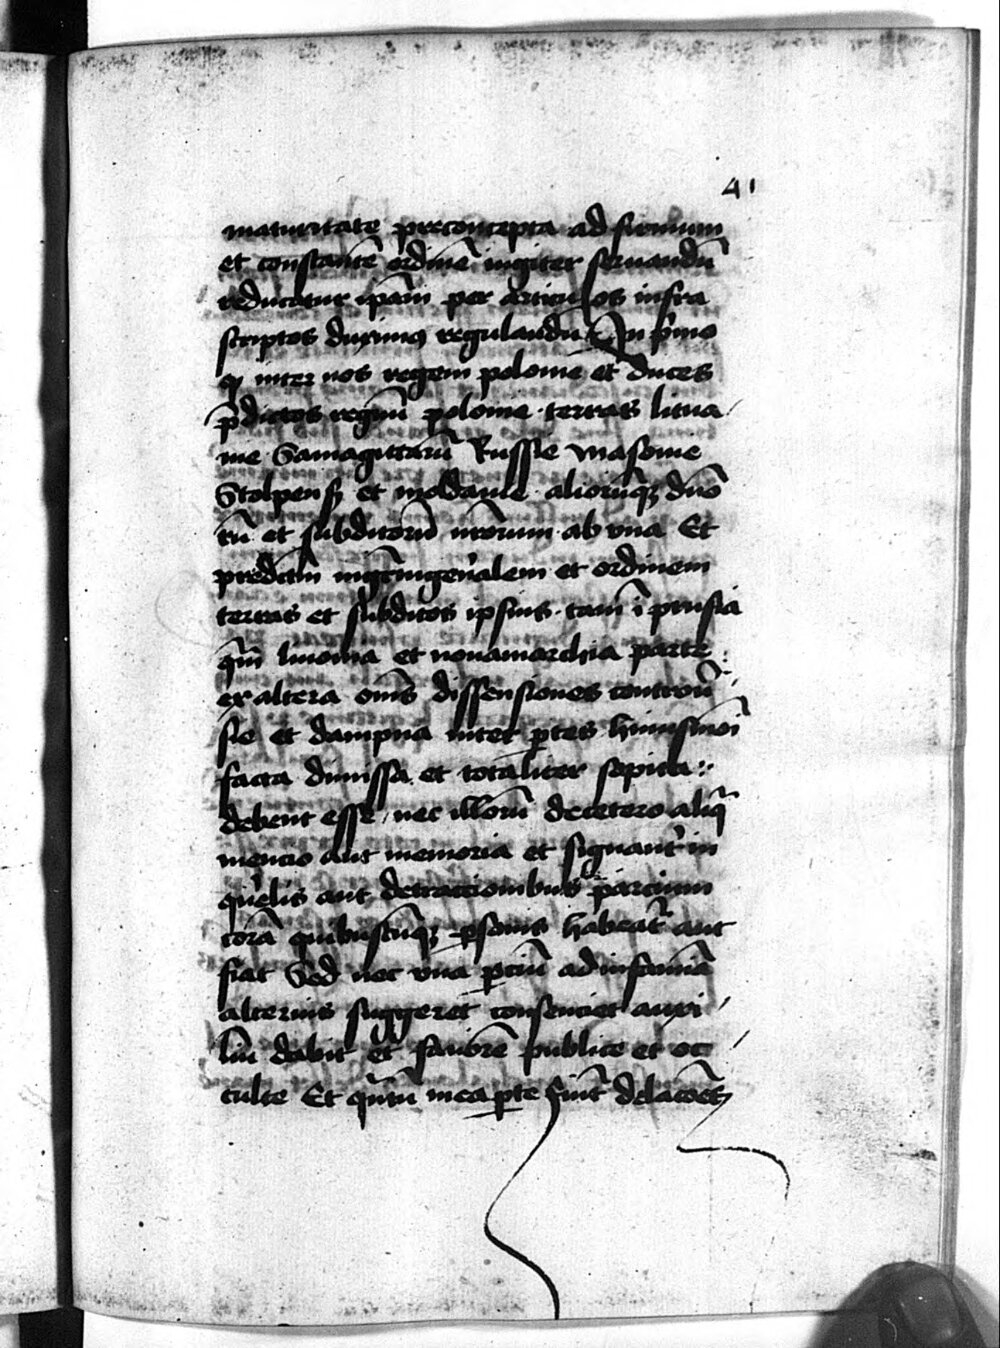 41
maturitate preconcepta ad firmum
et constantē ordinē iugiter seruandū
reducatur ip̄am per articulos infra
scriptos duximus regulandū In p̄mo
q̄ inter nos regem polonie et duces
p̄dictos regnū polonie terras litua
nie Samagittarū Russie Masouie
Stolpens et moldauie aliorūq̄ dn̄o
rū et subditorū n̄rorum ab vna Et
predictū mgr̄m gen̄alem et ordinem
terras et subditos ipsius tam ī prusia
q̄m liuonia et nouamarchia parte
ex altera om̄s dissensiones controū
sie et dampna inter p̄tes huiusmōi
facta dimissa et totaliter sopita
debent esse nec illorū decetero aliq̄
mencio aut memoria et signant̄ in
querelis aut detraccionibus parcium
corā quibuscūq̄ p̄sonis habeat̄ aut
fiat Sed nec vna p̄ciū ad infamiā
alterius suggeret consenciet auxi
liū dabit et fauorē publice et oc
culte Et q̄ntū in ea p̄te fiūt delacōes